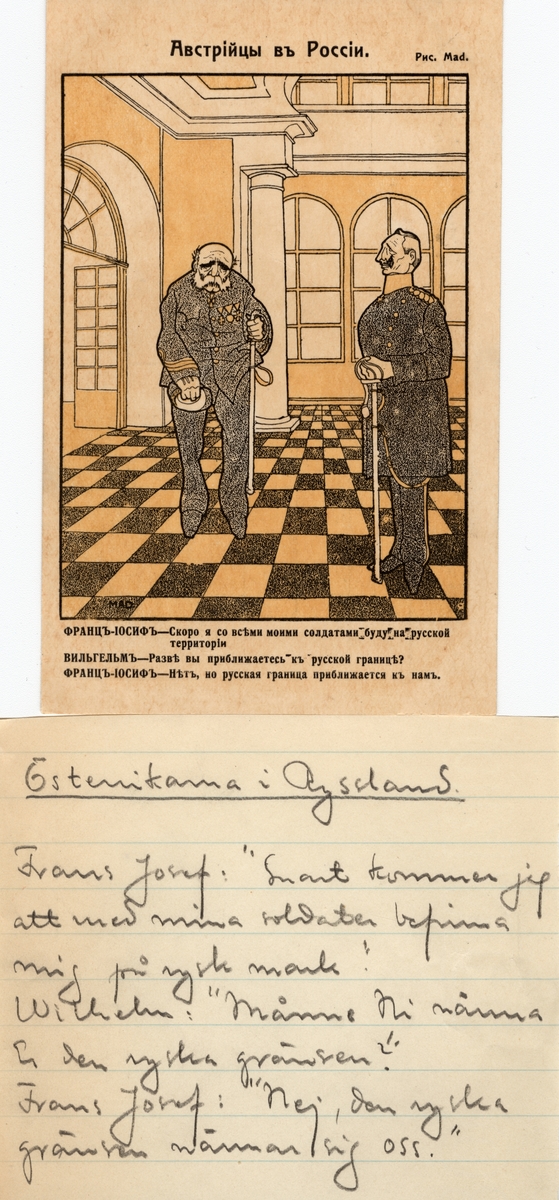 Австрійцы въ Россіи.
Рис. Mad.
MAD.
ФРАНЦЪ-ІОСИФЪ—Скоро я со всѣми моими солдатами буду на русской
территоріи
ВИЛЬГЕЛЬМЪ—Развѣ вы приближаетесь къ русской границѣ?
ФРАНЦЪ-ІОСИФЪ—Нѣтъ, но русская граница приближается къ намъ.
Österrikarna i Ryssland.
Frans Josef: "Snart kommer jag
att med mina soldater befinna
mig på rysk mark"
Wilhelm: "Månne Ni närma
Er den ryska gränsen?"
Frans Josef: "Nej, den ryska
gränsen närmar sig oss."